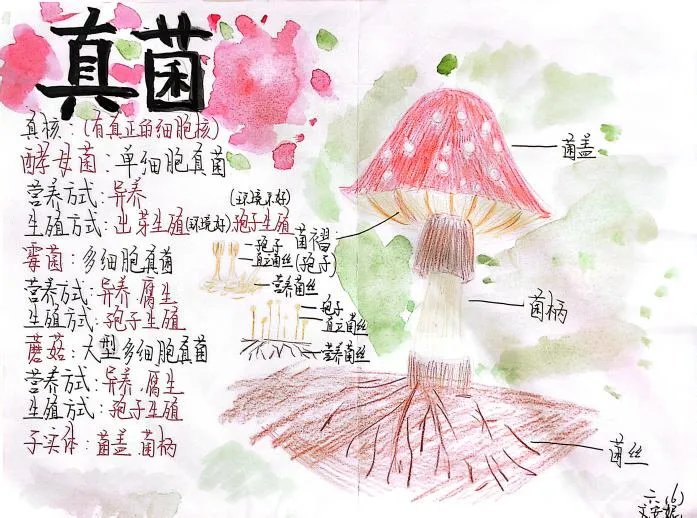 真菌
真核：(有真正的细胞核)
酵母菌：单细胞真菌
营养方式：异养
(环境不好)
生殖方式：出芽生殖(环境好).孢子生殖
霉菌：多细胞真菌
营养方式：异养.腐生
生殖方式：孢子生殖
蘑菇：大型多细胞真菌
营养方式：异养.腐生
生殖方式：孢子生殖
子实体：菌盖.菌柄
孢子
直立菌丝
营养菌丝
孢子
直立菌丝
营养菌丝
菌盖
菌褶：
(孢子)
菌柄
菌丝
六(6)